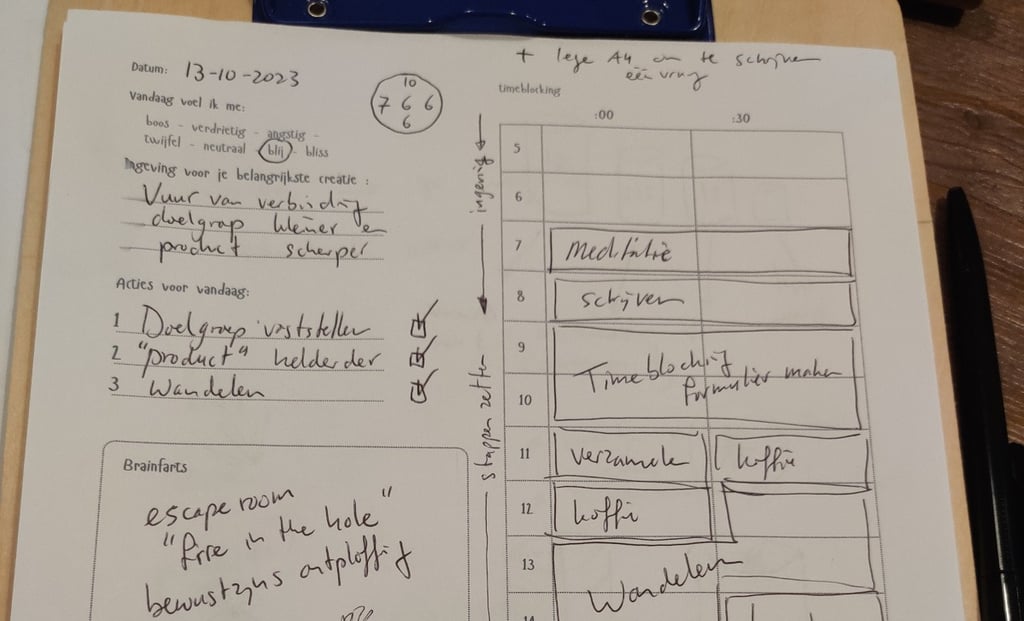 + lege A4 om te schrijven
één vraag
Datum: 13-10-2023
10
7 6 6
6
Vandaag voel ik me:
boos - verdrietig - angstig -
twijfel - neutraal - blij - bliss
Ingeving voor je belangrijkste creatie :
Vuur van verbinding
doelgroep kleiner en
product scherper
Acties voor vandaag:
1 Doelgroep vaststellen
2 "product" helderder
3 Wandelen
Brainfarts
escape room
"fire in the hole"
bewustzijns ontploffing
timeblocking
:00 :30
stappen zetten
5
6
7 Meditatie
8 schrijven
9 Timeblocking
10 formulier maken
11 verzamelen koffie
12 koffie
13 Wandelen
14